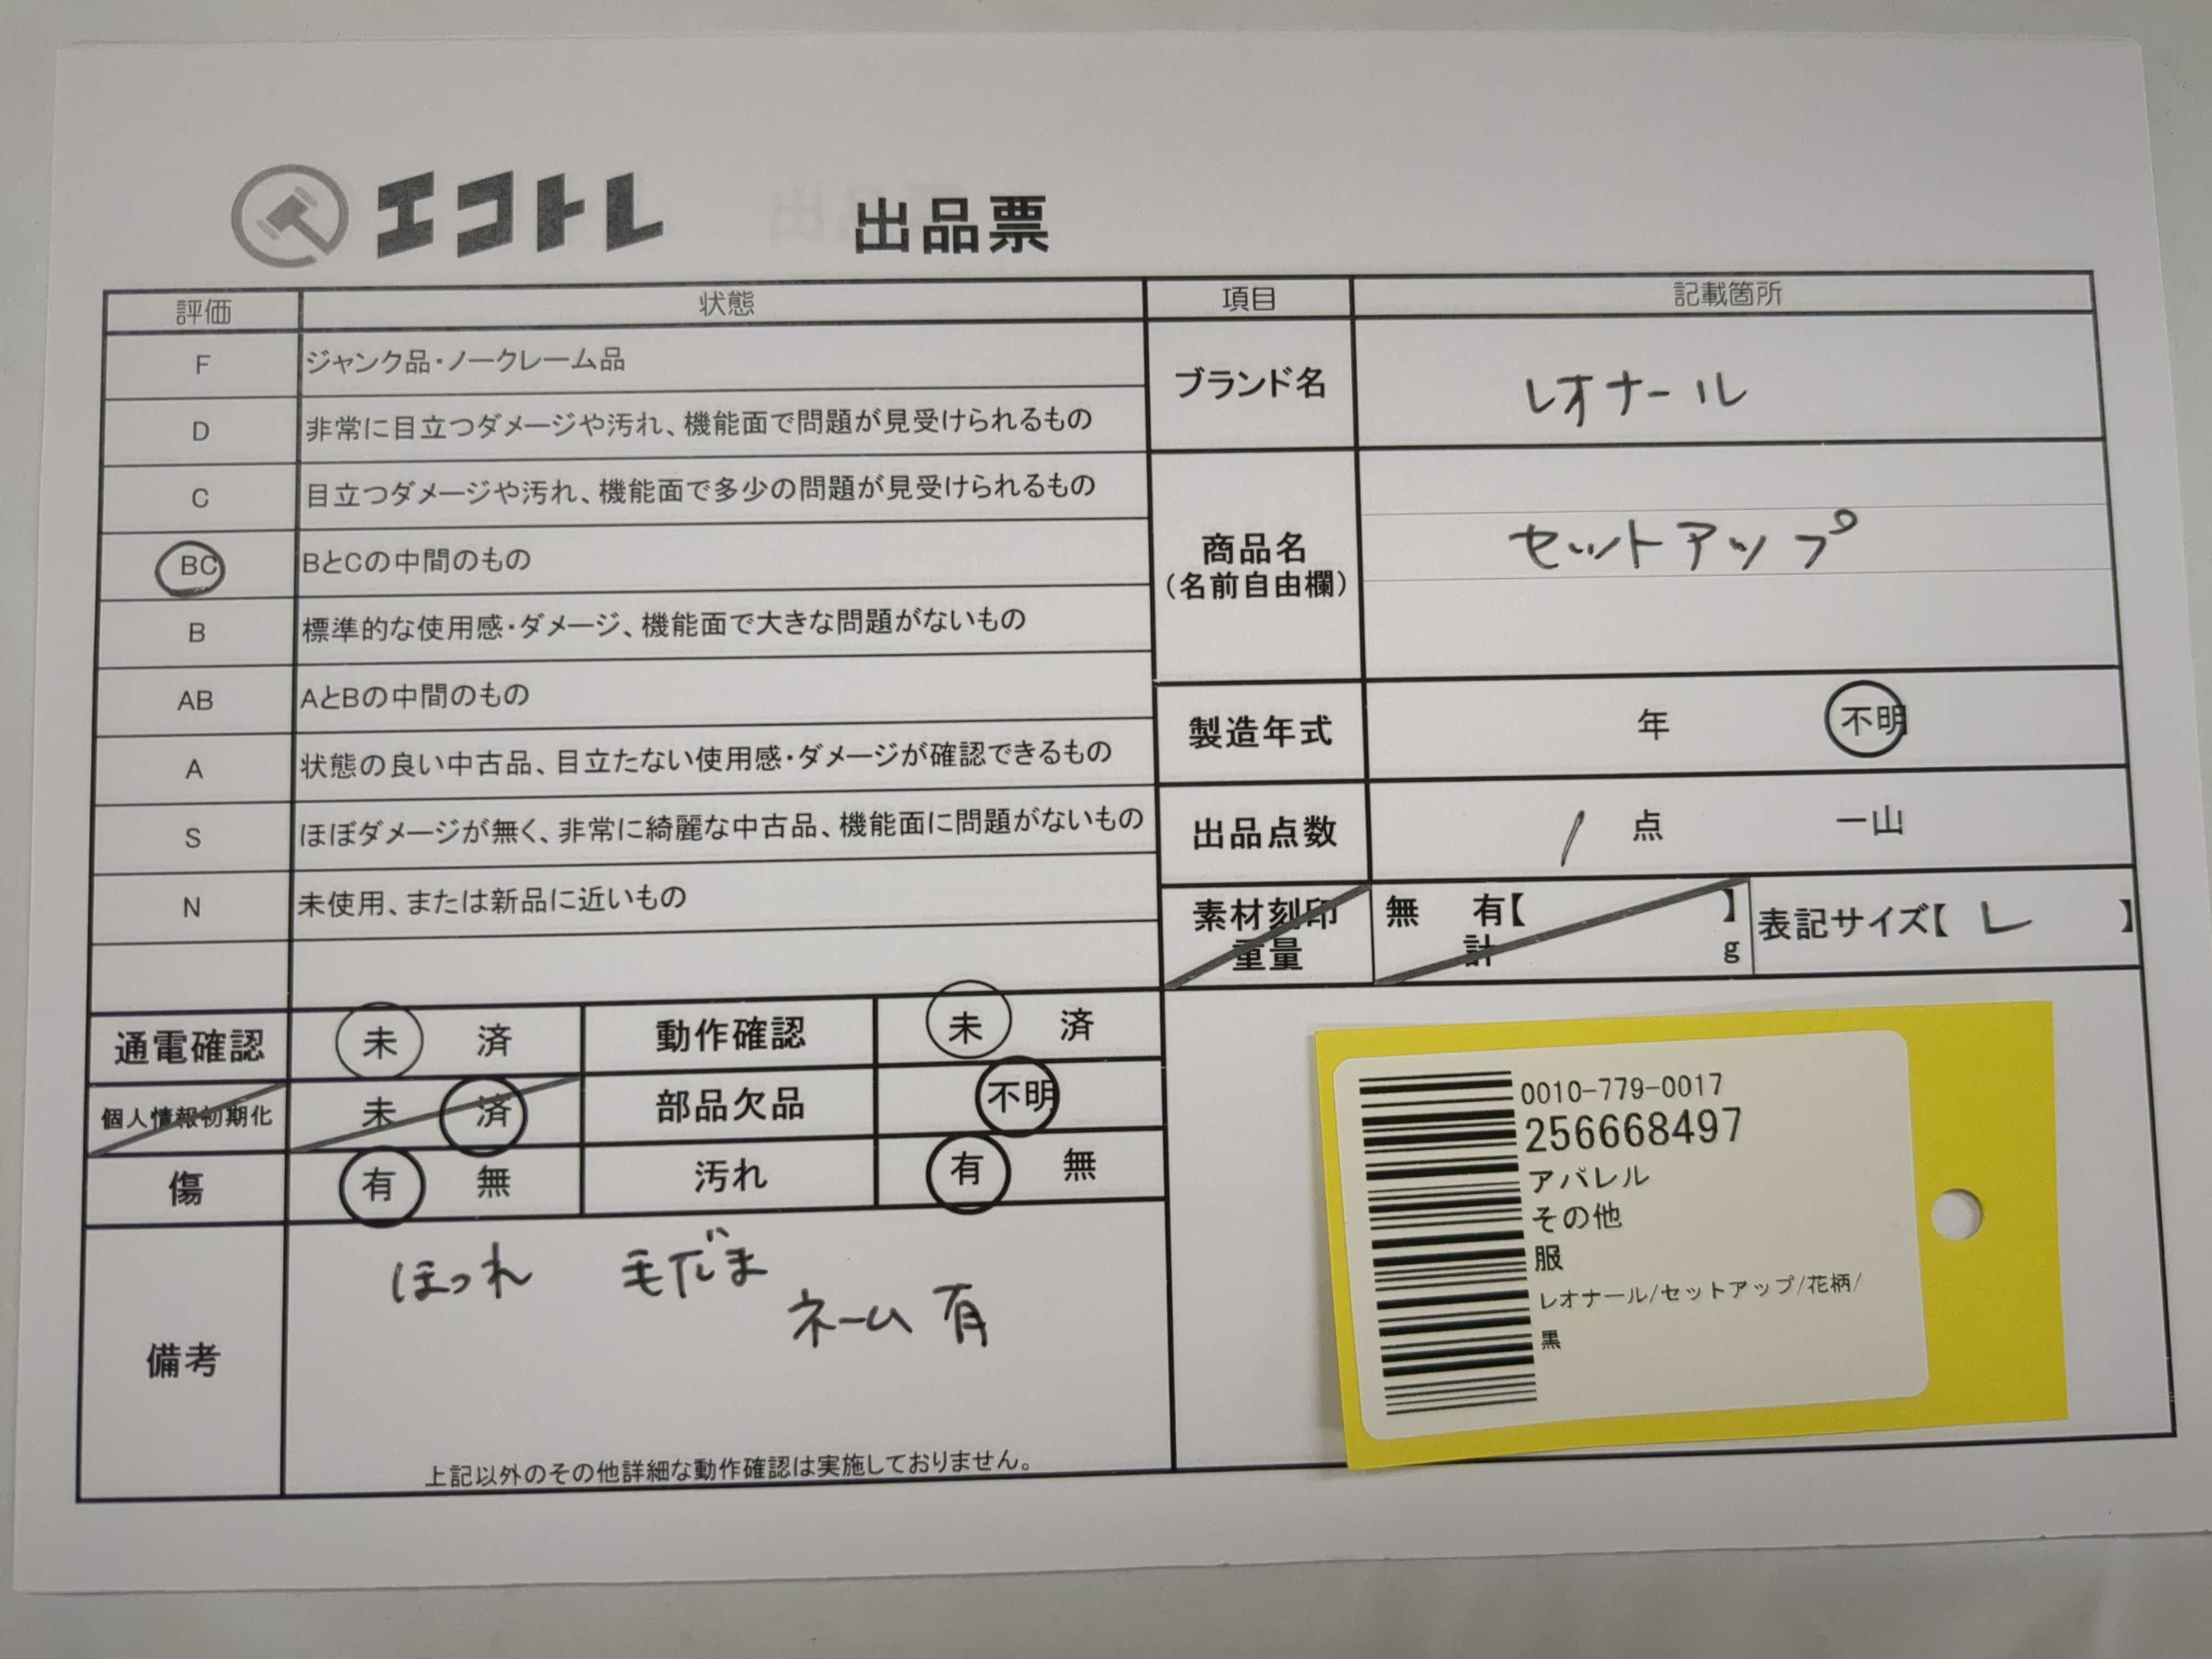 エコトレ 出品票
評価 状態 項目 記載箇所
F ジャンク品・ノークレーム品
D 非常に目立つダメージや汚れ、機能面で問題が見受けられるもの
C 目立つダメージや汚れ、機能面で多少の問題が見受けられるもの
BC BとCの中間のもの
B 標準的な使用感・ダメージ、機能面で大きな問題がないもの
AB AとBの中間のもの
A 状態の良い中古品、目立たない使用感・ダメージが確認できるもの
S ほぼダメージが無く、非常に綺麗な中古品、機能面に問題がないもの
N 未使用、または新品に近いもの
ブランド名 レオナール
商品名 セットアップ
(名前自由欄)
製造年式 年 不明
出品点数 1 点 一山
素材刻印 無 有【 】 表記サイズ【 L 】
重量 計 g
通電確認 未 済 動作確認 未 済
個人情報初期化 未 済 部品欠品 不明
傷 有 無 汚れ 有 無
備考 ほつれ 毛だま
ネーム有
上記以外のその他詳細な動作確認は実施しておりません。
0010-779-0017
256668497
アパレル
その他
服
レオナール/セットアップ/花柄/
黒